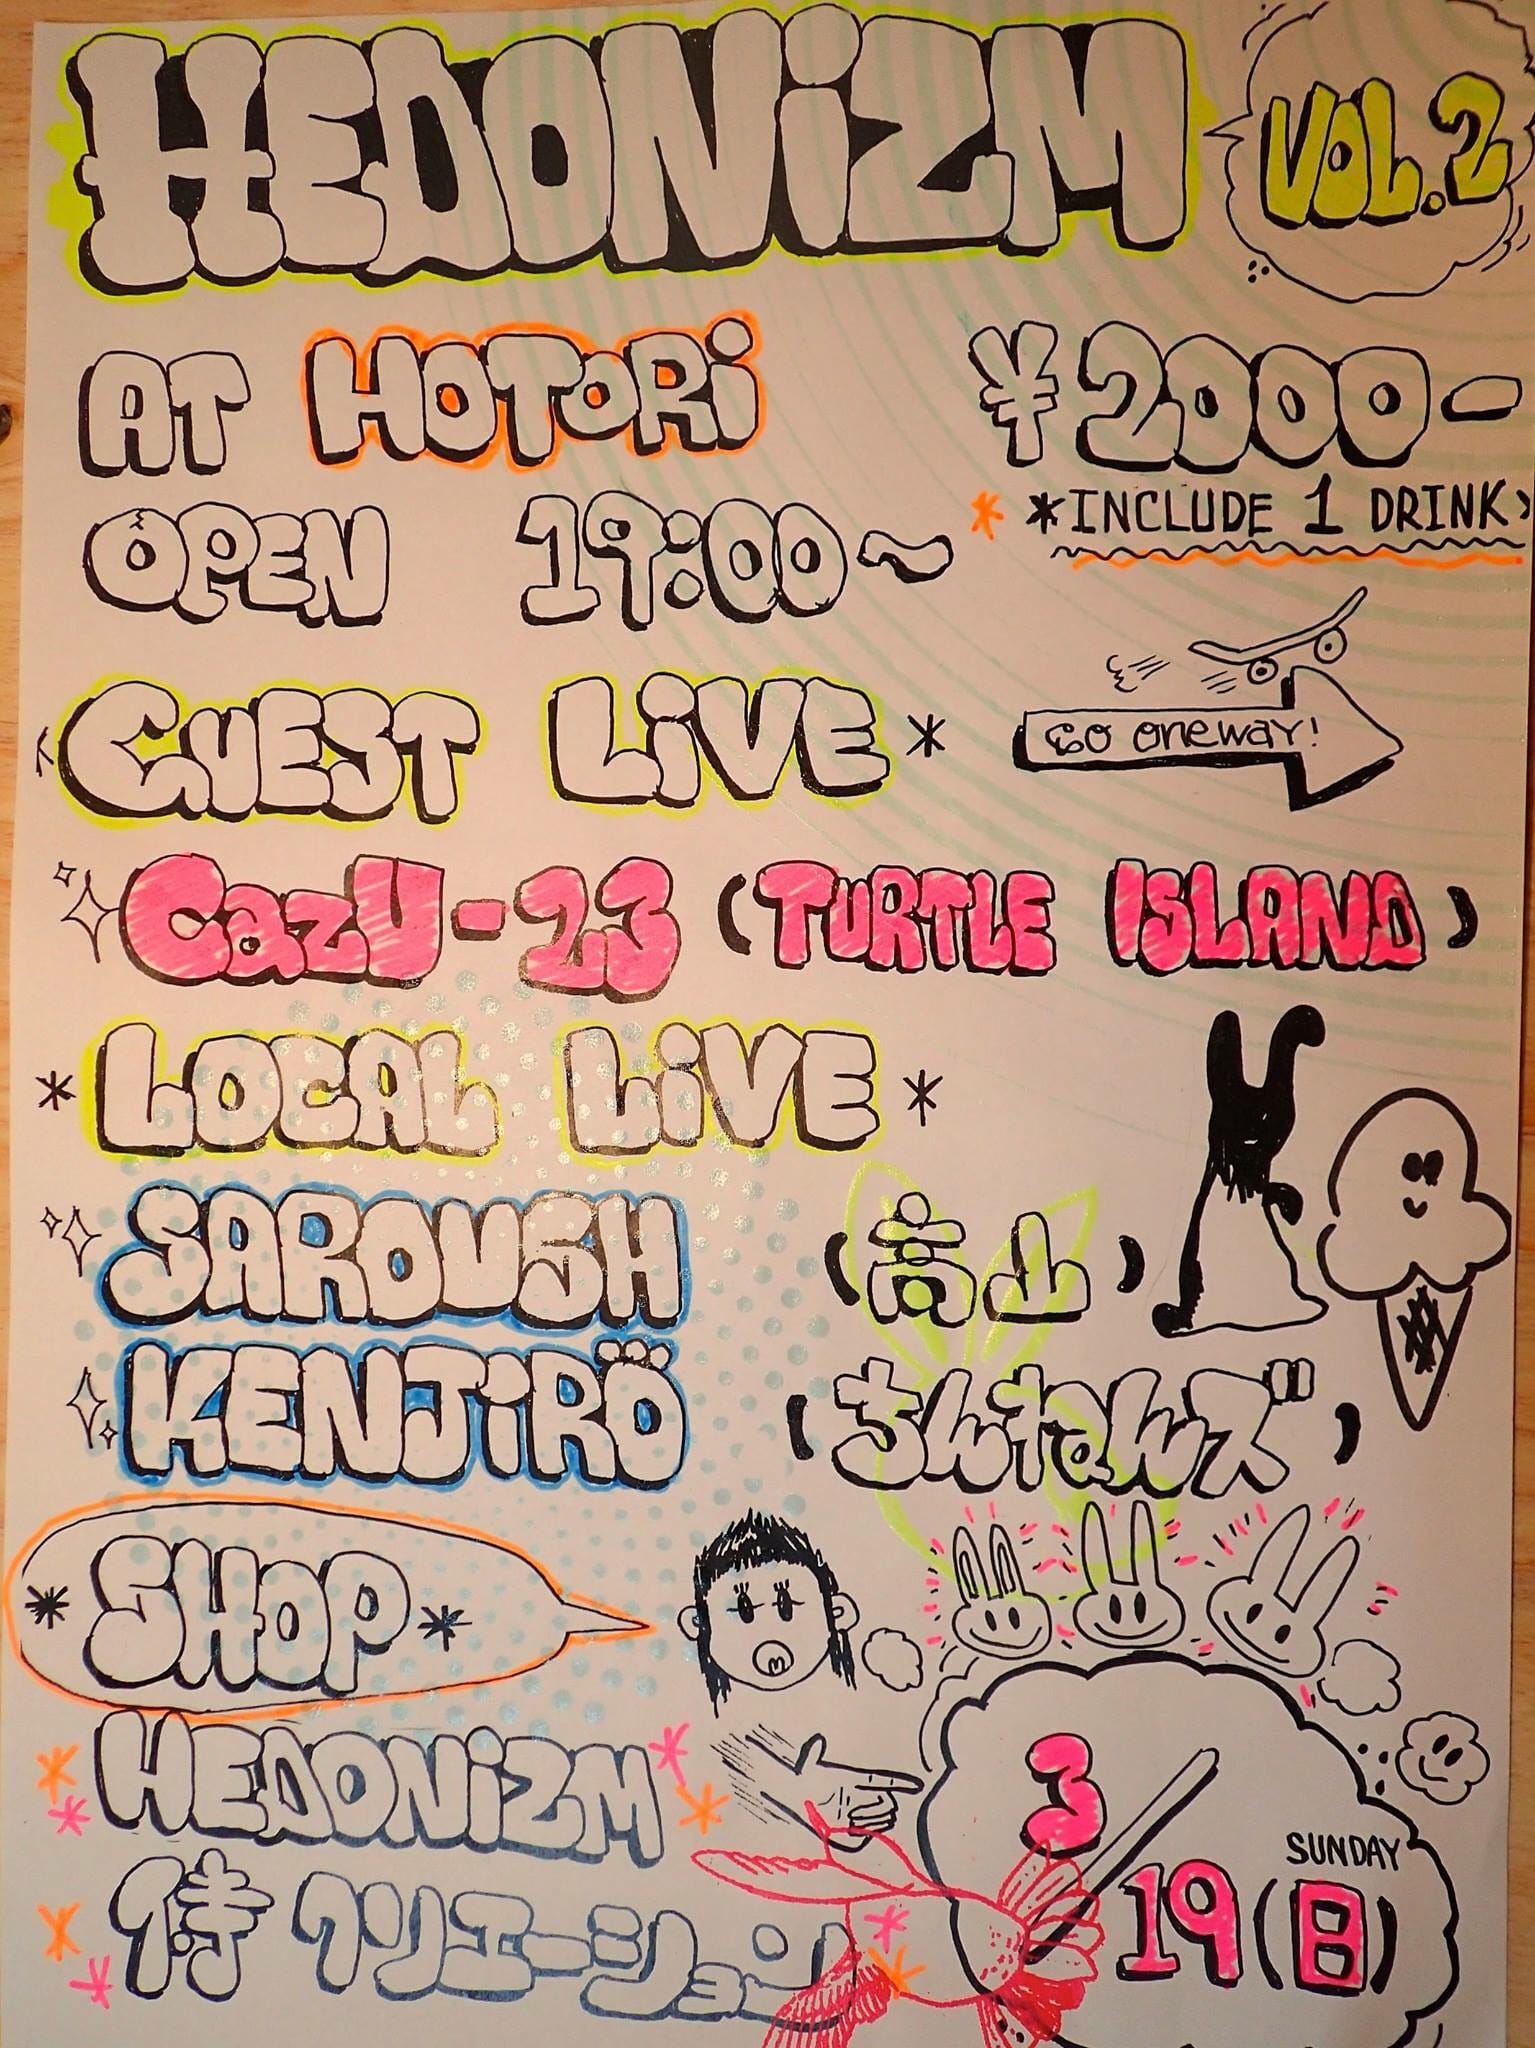 HEDONiZM VOL.2
AT HOTORi ¥2000-
*INCLUDE 1 DRINK
OPEN 19:00~
GUEST LiVE *
GO ONEWAY!
CazU-23 (TURTLE ISLAND)
* LOCAL LiVE *
SAROUSH (高山)
KENJiRO (ちんねんズ)
* SHOP *
HEDONiZM
侍クリエーション
3/19(日)
SUNDAY